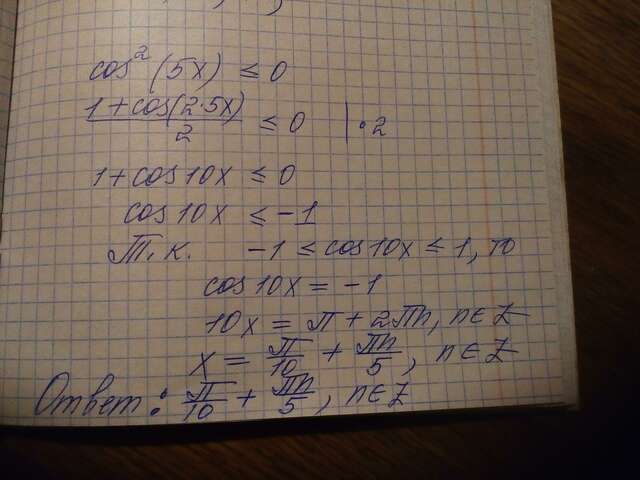 cos²(5x) ≤ 0
(1 + cos(2·5x))/2 ≤ 0 | · 2
1 + cos 10x ≤ 0
cos 10x ≤ -1
Т.к. -1 ≤ cos 10x ≤ 1, то
cos 10x = -1
10x = π + 2πn, n ∈ Z
x = π/10 + πn/5, n ∈ Z
Ответ: π/10 + πn/5, n ∈ Z